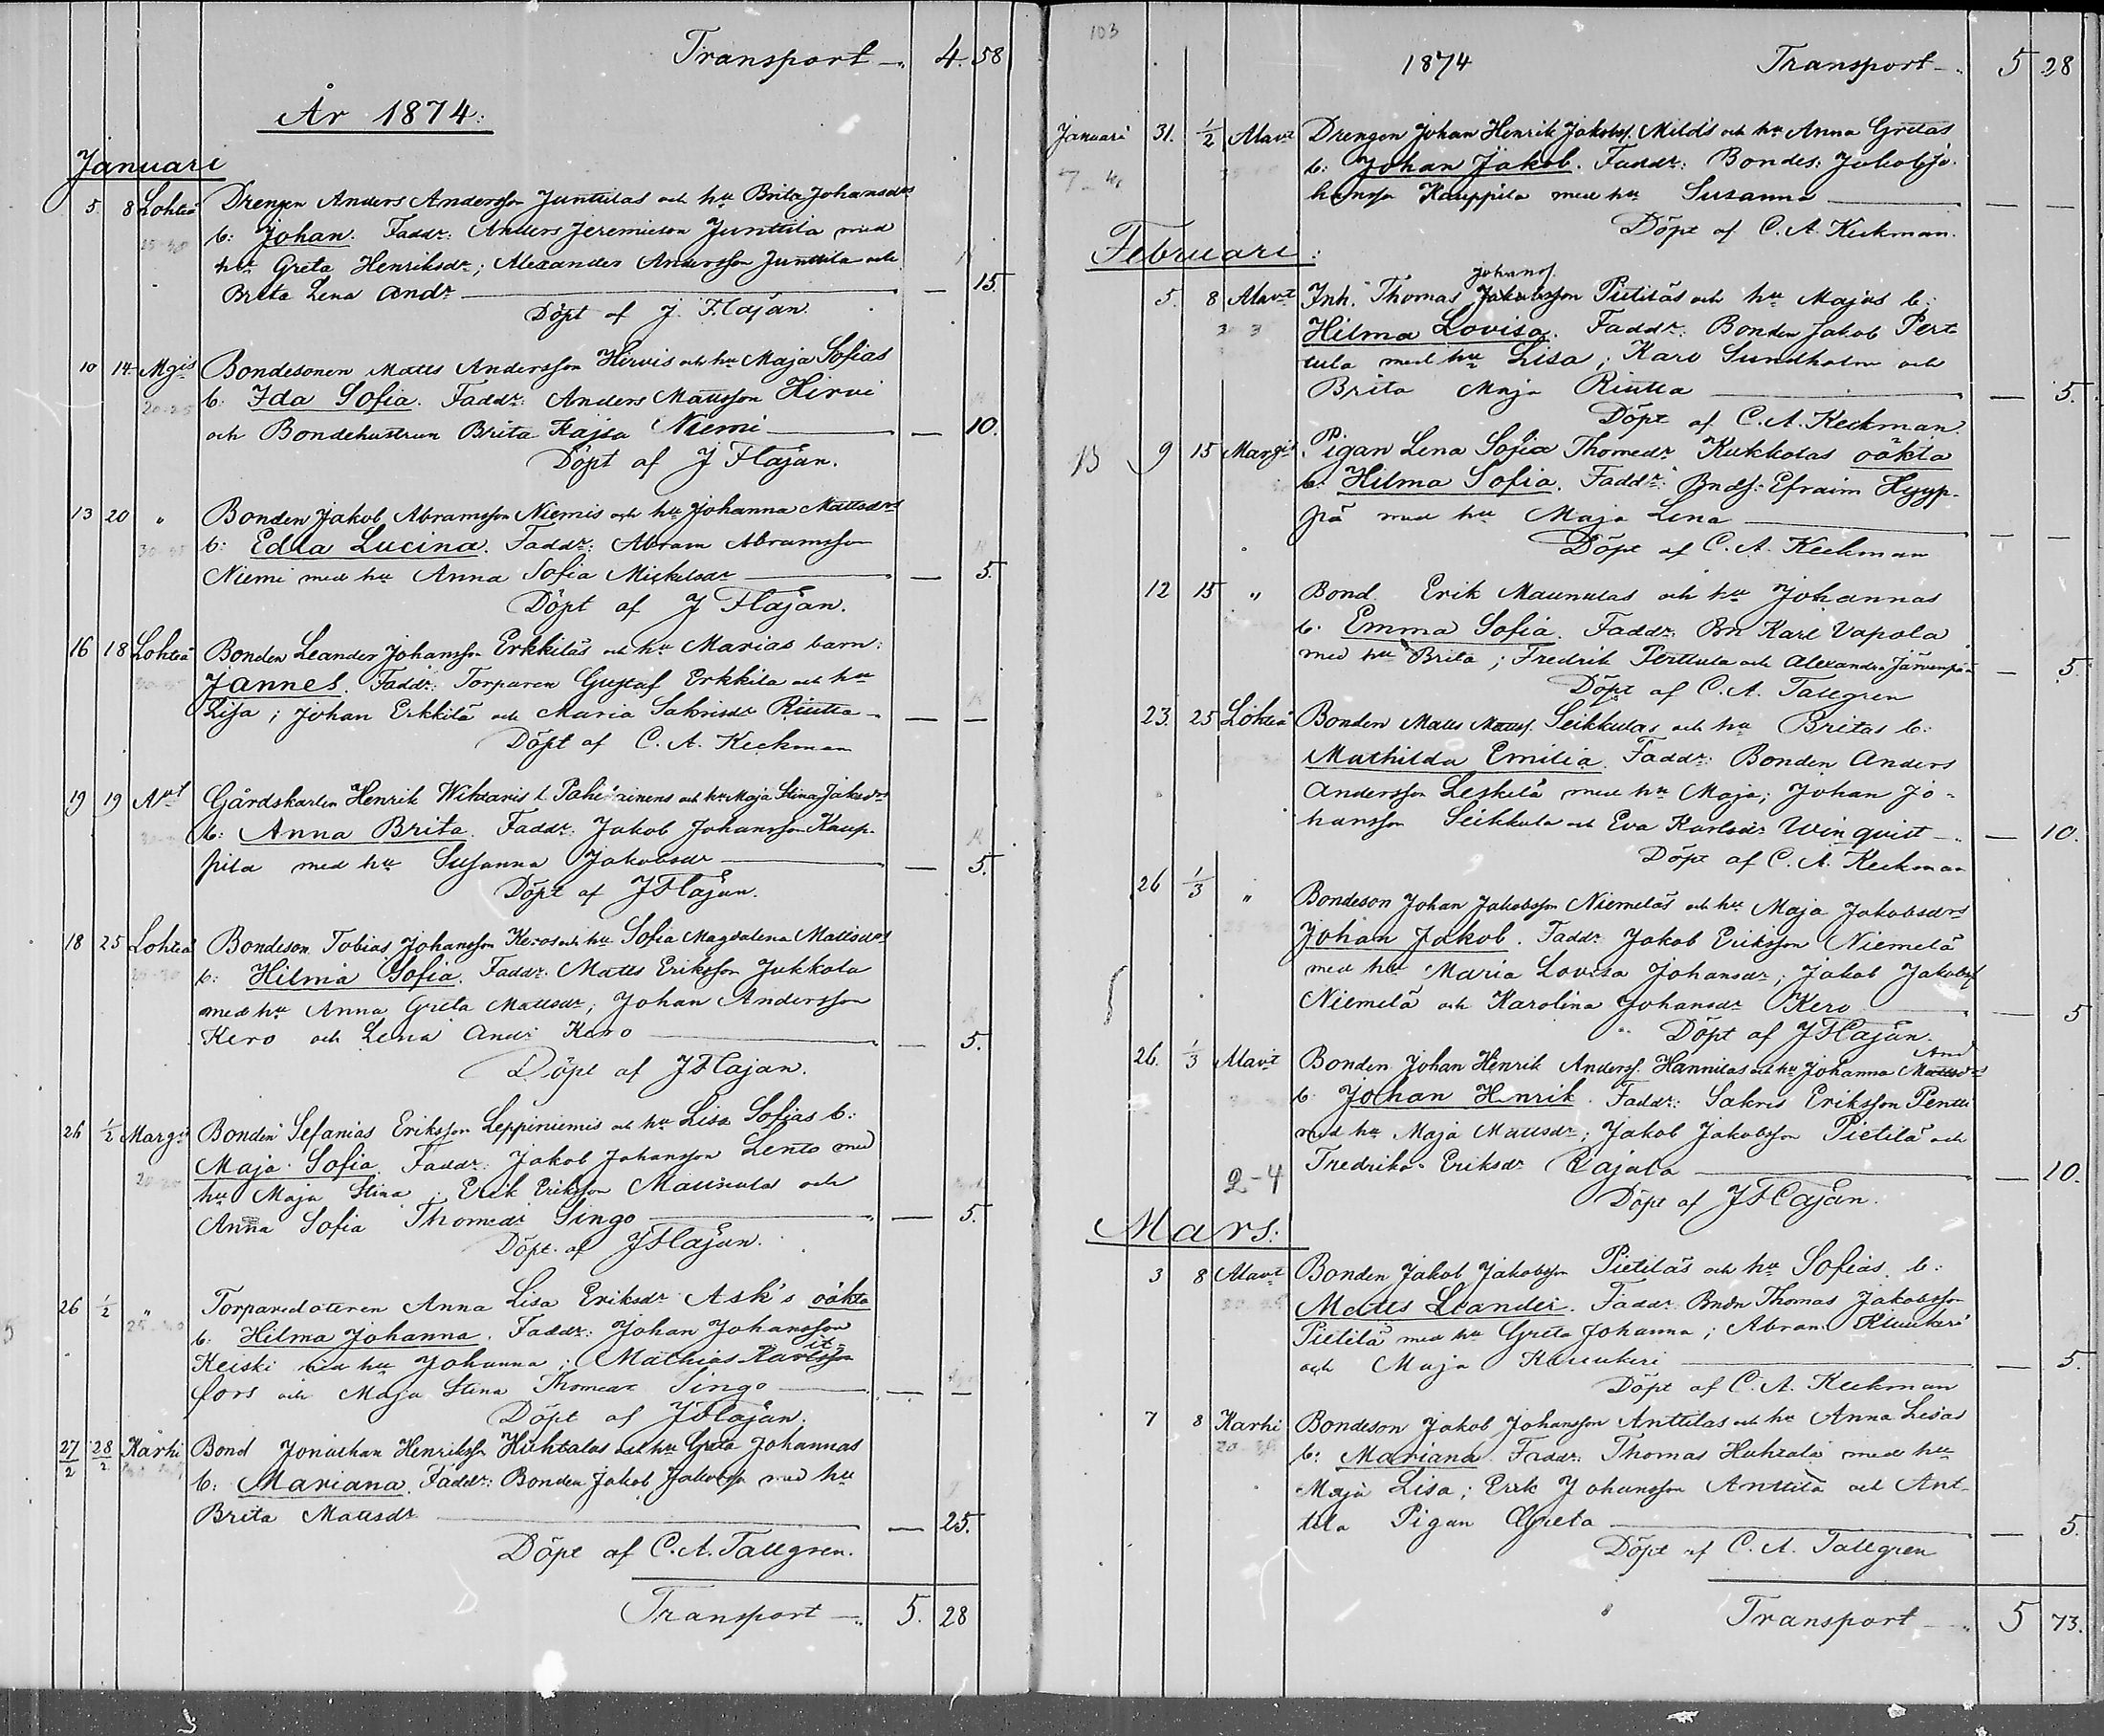 Transport 4. 58
År 1874.
Januari
5. 8 Lohteå Drengen Anders Andersson Junttilas och hu Brita Johansdrs
b: Johan. Faddr: Anders Jeremiason Junttila med
hu Greta Henriksdr; Alexander Andersson Junttila och
Brita Lena Andr — 15.
Döpt af J. Flaján.
10 14 Mgis Bondesonen Matts Andersson Hirvis och hu Maja Sofias
20-25 b. Ida Sofia. Faddr: Anders Mattsson Hirvi
och Bondehustrun Brita Kajsa Niemi — 10.
Döpt af J Flaján.
13 20 " Bonden Jakob Abramsson Niemis och hu Johanna Mattsdrs
b: Edla Lucina. Faddr: Abram Abramsson
Niemi med hu Anna Sofia Mickelsdr — 5.
Döpt af J Flaján.
16 18 Lohteå Bonden Leander Johansson Erkkiläs och hu Marias barn:
Jannes. Faddr: Torparen Gustaf Erkkilä och hu
Lisa; Johan Erkkilä och Maria Sakrisdr Riutta — —
Döpt af C. A. Keckman
19 19 Gårdskarlen Henrik Wiktaris l. och hu Maja Stina Jakodrs
b: Anna Brita. Faddr: Jakob Johansson Kaup-
pila med hu Susanna Jakobsdr — 5.
Döpt af J Flaján.
18 25 Lohteå Bondeson Tobias Johansson Keros och hu Sofia Magdalena Mattsdrs
b: Hilma Sofia. Faddr: Matts Eriksson Jukkola
med hu Anna Greta Mattsdr; Johan Andersson
Kero och Lena Andr Kero — 5.
Döpt af J Flajan.
26 1/2 Margis Bonden Sefanias Eriksson Leppiniemis och hu Lisa Sofias b:
Maja Sofia. Faddr: Jakob Johansson Lento med
hu Maja Stina; Erik Eriksson Maunula och
Anna Sofia Thomedr Singo — 5.
Döpt af J Flaján.
26 1/2 " Torparedotteren Anna Lisa Eriksdr Ask's oäkta
b. Hilma Johanna. Faddr: Johan Johansson
Keiski med hu Johanna; Mathias
fors och Maja Stina Thomedr Singo — —
Döpt af J Flaján.
27/2 28/2 Karhi Bond Jonathan Henriksson Huhtalas och hu Greta Johannas
b: Mariana. Faddr: Bonden Jakob Jakobsson med hu
Brita Mattsdr — 25.
Döpt af C. A. Tallgren.
Transport 5. 28
103
1874 Transport 5 28
Januari 31. 1/2 Alavt Drengen Johan Henrik Jakobss. Milds och hu Anna Gretas
b: Johan Jakob. Faddr: Bondes: Jakob Jo-
hansson Kauppila med hu Susanna — —
Döpt af C. A. Keckman.
Februari:
Johanss.
5. 8 Alavt Inh. Thomas Jakobsson Pietiläs och hu Majas b:
Hilma Lovisa. Faddr: Bonden Jakob Pert
tula med hu Lisa; Karl Sundholm och
Brita Maja Riutta — 5.
Döpt af C. A. Keckman.
9 15 Margis Pigan Lena Sofia Thomedr Kukkolas oäkta
b: Hilma Sofia. Faddr: Bnds: Efraim Hyyp-
pä med hu Maja Lena — —
Döpt af C. A. Keckman
12 15 " Bond. Erik Maunulas och hu Johannas
b. Emma Sofia. Faddr: Bn Karl Vapola
med hu Brita; Fredrik Perttula och Alexandra Järvenpä — 5.
Döpt af C. A. Tallgren
23. 25 Lohteå Bonden Matts Mattss. Seikkulas och hu Britas b:
Mathilda Emilia. Faddr: Bonden Anders
Andersson Leskelä med hu Maja; Johan Jo-
hansson Seikkula och Eva Karlsdr Winquist — 10.
Döpt af C. A. Keckman
26 1/3 " Bondeson Johan Jakobsson Niemeläs och hu Maja Jakobsdrs
Johan Jakob. Faddr: Jakob Eriksson Niemelä
med hu Maria Lovisa Johansdr; Jakob Jakobss
Niemelä och Karolina Johansdr Kero — 5
Döpt af J Flaján.
And
26. 1/3 Alavt Bonden Johan Henrik Anderss. Hannilas och hu Johanna Mattsdrs
b. Johan Henrik. Faddr: Sakris Eriksson Pentti
med hu Maja Mattsdr; Jakob Jakobsson Pietilä och
2-4 Fredrika Eriksdr Rajala — 10.
Döpt af J Flaján.
Mars:
3 8 Alavt Bonden Jakob Jakobsson Pietiläs och hu Sofias b:
Matts Leander. Faddr: Bndn Thomas Jakobsson
Pietilä med hu Greta Johanna; Abram
och Maja — 5.
Döpt af C. A. Keckman
7 8 Karhi Bondeson Jakob Johansson Anttilas och hu Anna Lisas
b: Mariana. Faddr: Thomas Huhtala med hu
Maja Lisa; Erik Johansson Anttila och Ant-
tila Pigan Greta — 5.
Döpt af C. A. Tallgren
Transport 5 73.